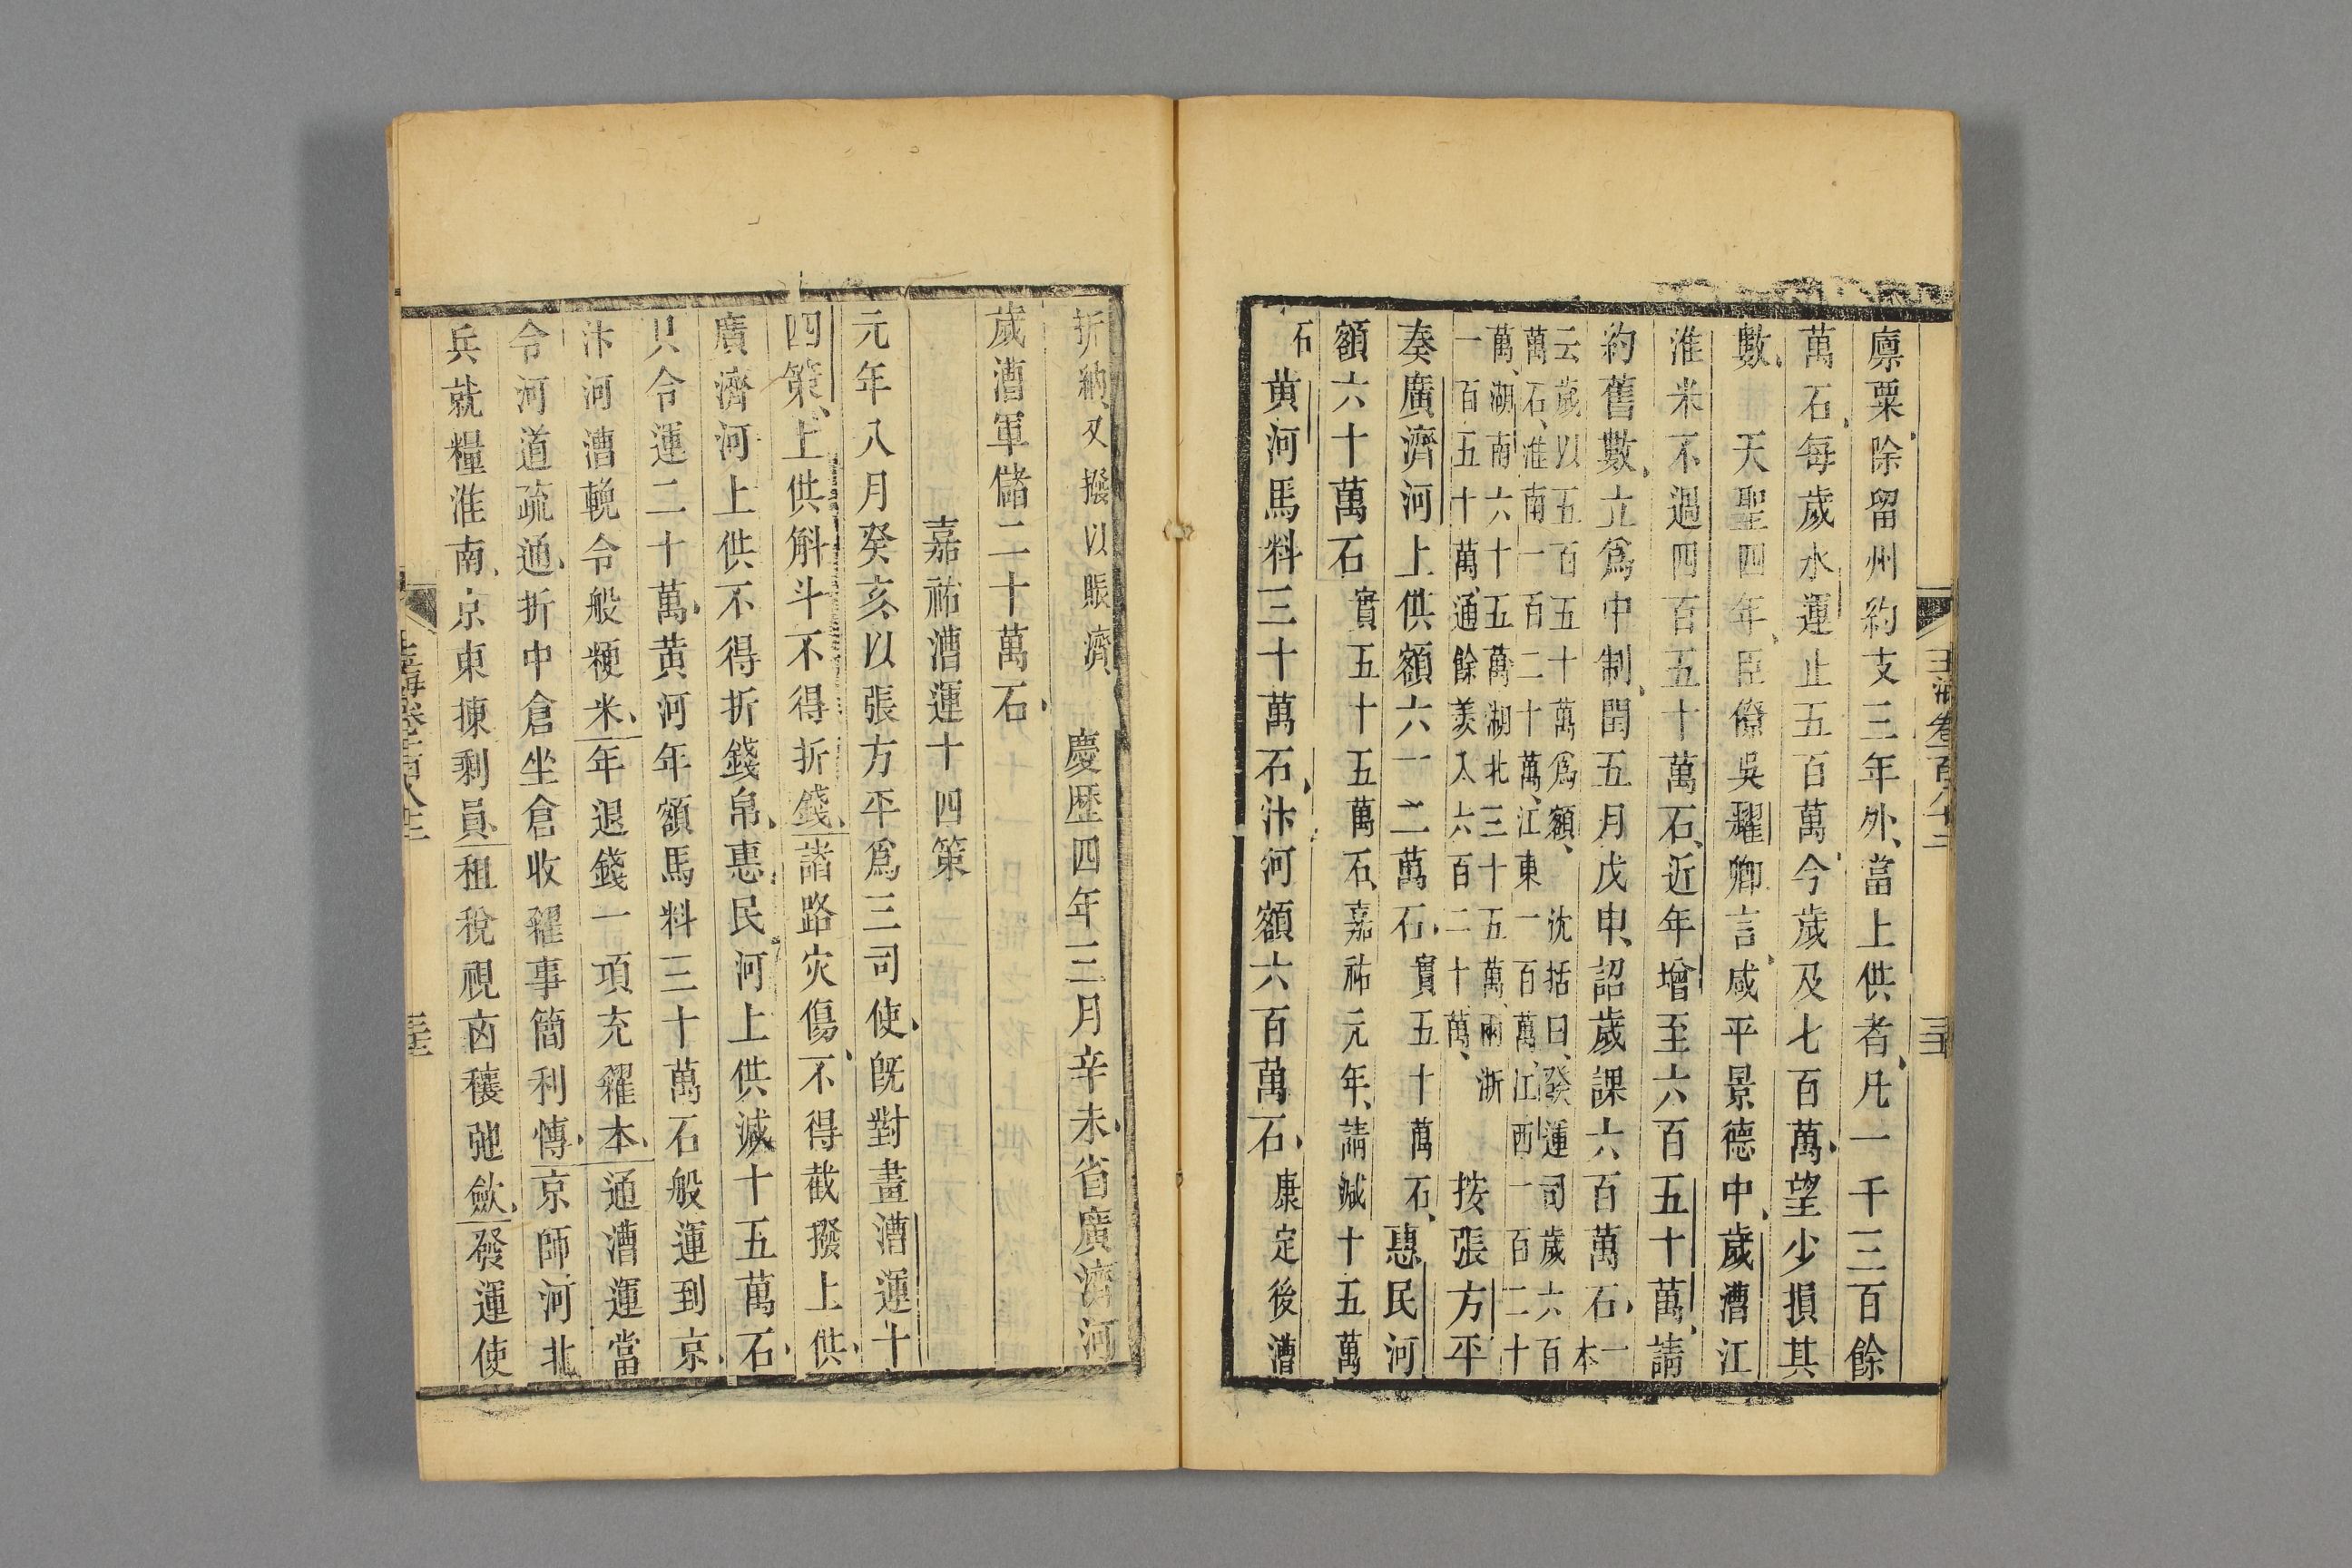 玉海卷一百八十二
廪粟除留州約支三年外、當上供者、凡一千三百餘
萬石、每歲水運止五百萬、今歲及七百萬、望少損其
數、天聖四年、臣僚吳耀卿言、咸平景德中、歲漕江
淮米不過四百五十萬石、近年增至六百五十萬、請
約舊數、立爲中制、閏五月戊申、詔歲課六百萬石、一本
云歲以五百五十萬爲額、沈括曰、發運司歲六百
萬石、淮南一百二十萬、江東一百萬、江西一百二十
萬、湖南六十五萬、湖北三十五萬、兩浙
一百五十萬、通餘羨入六百二十萬、按張方平
奏廣濟河上供額六一二萬石、實五十萬石、惠民河
額六十萬石實五十五萬石、嘉祐元年、請減十五萬
石黃河馬料三十萬石、汴河額六百萬石、康定後漕
折納、又撥以賑濟、慶歷四年三月辛未、省廣濟河
歲漕軍儲二十萬石、
嘉祐漕運十四策
元年八月癸亥、以張方平爲三司使、旣對畫漕運十
四策、上供斛斗不得折錢、諸路灾傷、不得截撥上供、
廣濟河上供不得折錢帛、惠民河上供減十五萬石、
只令運二十萬、黃河年額馬料三十萬石般運到京、
汴河漕輓令般粳米、年退錢一項充糴本、通漕運當
令河道疏通、折中倉坐倉收糴事簡利慱、京師河北
兵就糧淮南、京東揀剩員、租稅視凶穰弛歛、發運使